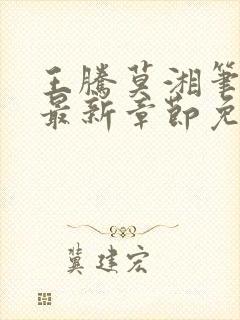 王騰莫湘筆
最新章節免
冀建宏